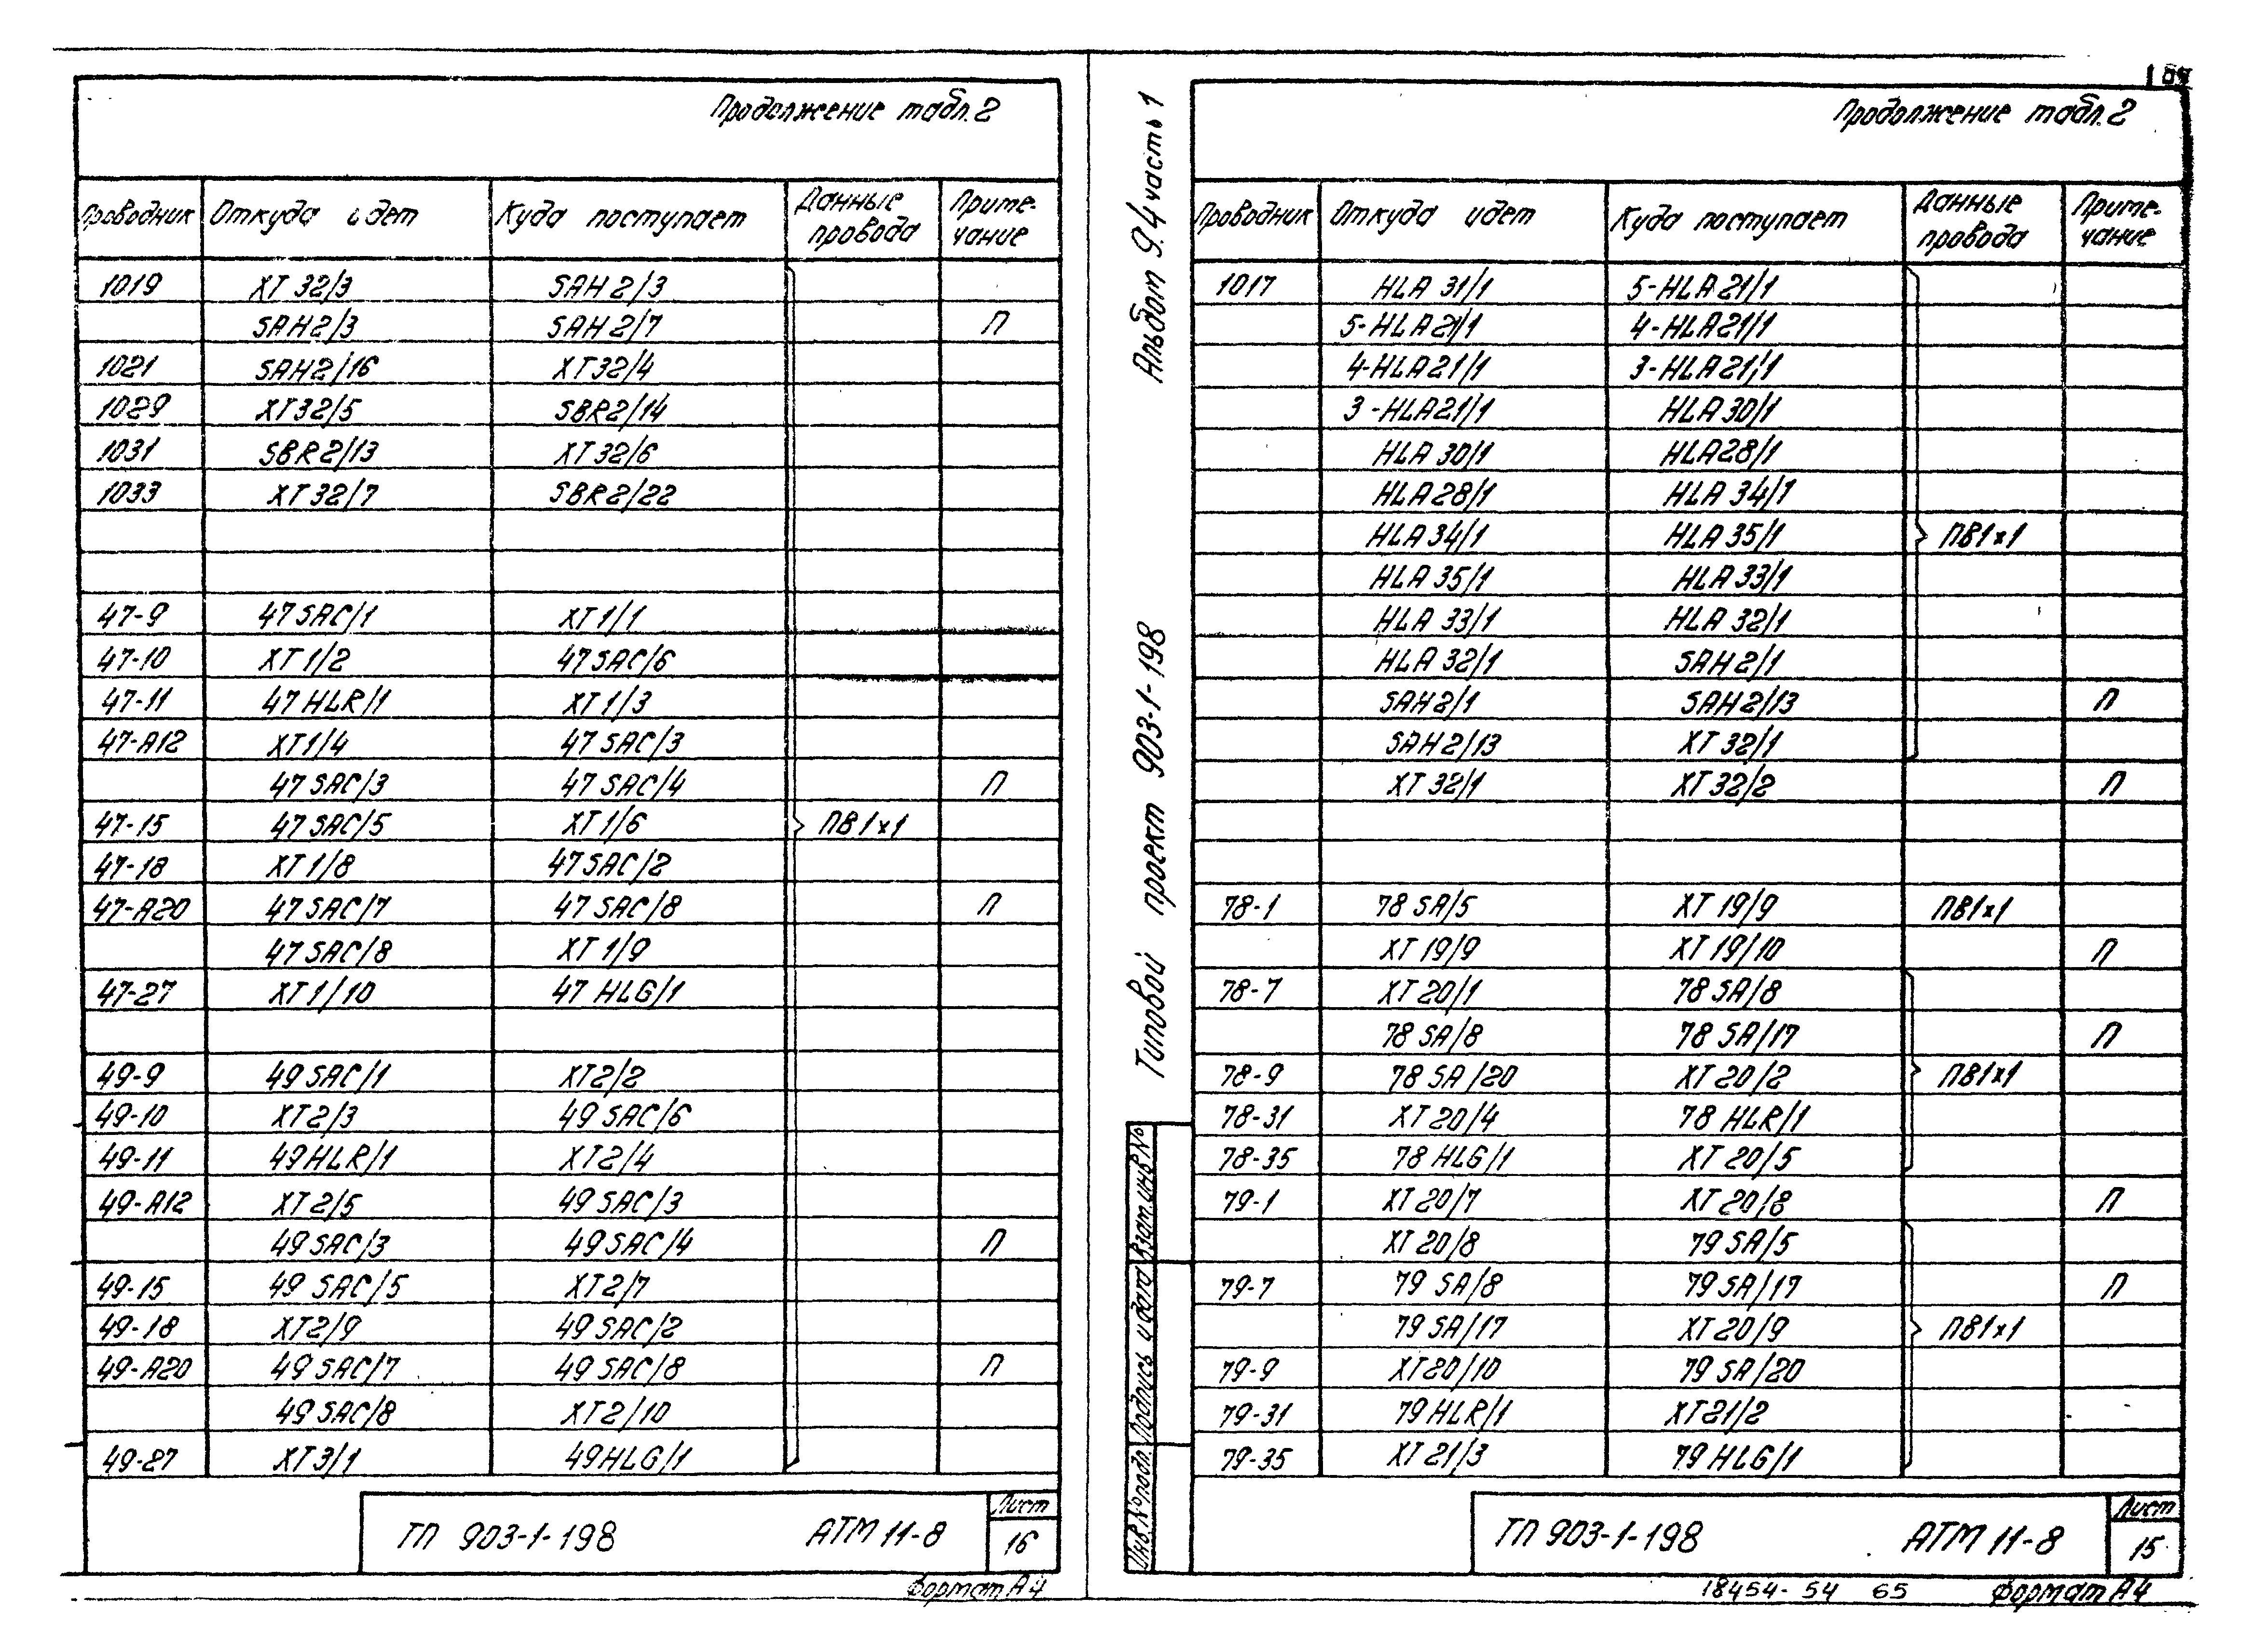 Продолжение табл. 2
Проводник Откуда идет Куда поступает Данные провода Приме-чание
1019 XT 32/3 SAH 2/3
SAH2/3 SAH 2/7 П
1021 SAH2/16 XT32/4
1029 XT32/5 SBR2/14
1031 SBR2/13 XT32/6
1033 XT32/7 SBR2/22
47-9 47SAC/1 XT1/1
47-10 XT1/2 47SAC/6
47-11 47HLR/1 XT1/3
47-A12 XT1/4 47SAC/3
47SAC/3 47SAC/4 П
47-15 47SAC/5 XT1/6 ПВ1×1
47-18 XT1/8 47SAC/2
47-A20 47SAC/7 47SAC/8 П
47SAC/8 XT1/9
47-27 XT1/10 47 HLG/1
49-9 49SAC/1 XT2/2
49-10 XT2/3 49SAC/6
49-11 49HLR/1 XT2/4
49-A12 XT2/5 49SAC/3
49SAC/3 49SAC/4 П
49-15 49 SAC/5 XT2/7
49-18 XT2/9 49SAC/2
49-A20 49SAC/7 49SAC/8 П
49SAC/8 XT2/10
49-27 XT3/1 49HLG/1
ТП 903-1-198 АТМ 11-8 Лист 16
Формат А4
Альбом 9.4 часть 1
Типовой проект 903-1-198
Взам. инв. №
Подпись и дата
Инв. № подл.
Продолжение табл. 2
Проводник Откуда идет Куда поступает Данные провода Приме-чание
1017 HLA 31/1 5-HLA21/1
5-HLA21/1 4-HLA21/1
4-HLA21/1 3-HLA21/1
3-HLA21/1 HLA 30/1
HLA 30/1 HLA28/1
HLA28/1 HLA 34/1
HLA34/1 HLA 35/1 ПВ1×1
HLA 35/1 HLA 33/1
HLA 33/1 HLA 32/1
HLA 32/1 SAH2/1
SAH2/1 SAH2/13 П
SAH2/13 XT 32/1
XT 32/1 XT32/2 П
78-1 78 SA/5 XT 19/9 ПВ1×1
XT 19/9 XT 19/10 П
78-7 XT 20/1 78 SA/8
78 SA/8 78 SA/17 П
78-9 78 SA/20 XT 20/2 ПВ1×1
78-31 XT 20/4 78 HLR/1
78-35 78 HLG/1 XT 20/5
79-1 XT 20/7 XT 20/8 П
XT 20/8 79 SA/5
79-7 79 SA/8 79 SA/17 П
79 SA/17 XT 20/9 ПВ1×1
79-9 XT20/10 79 SA/20
79-31 79HLR/1 XT21/2
79-35 XT 21/3 79 HLG/1
ТП 903-1-198 АТМ 11-8 Лист 15
18454-54 65 Формат А4